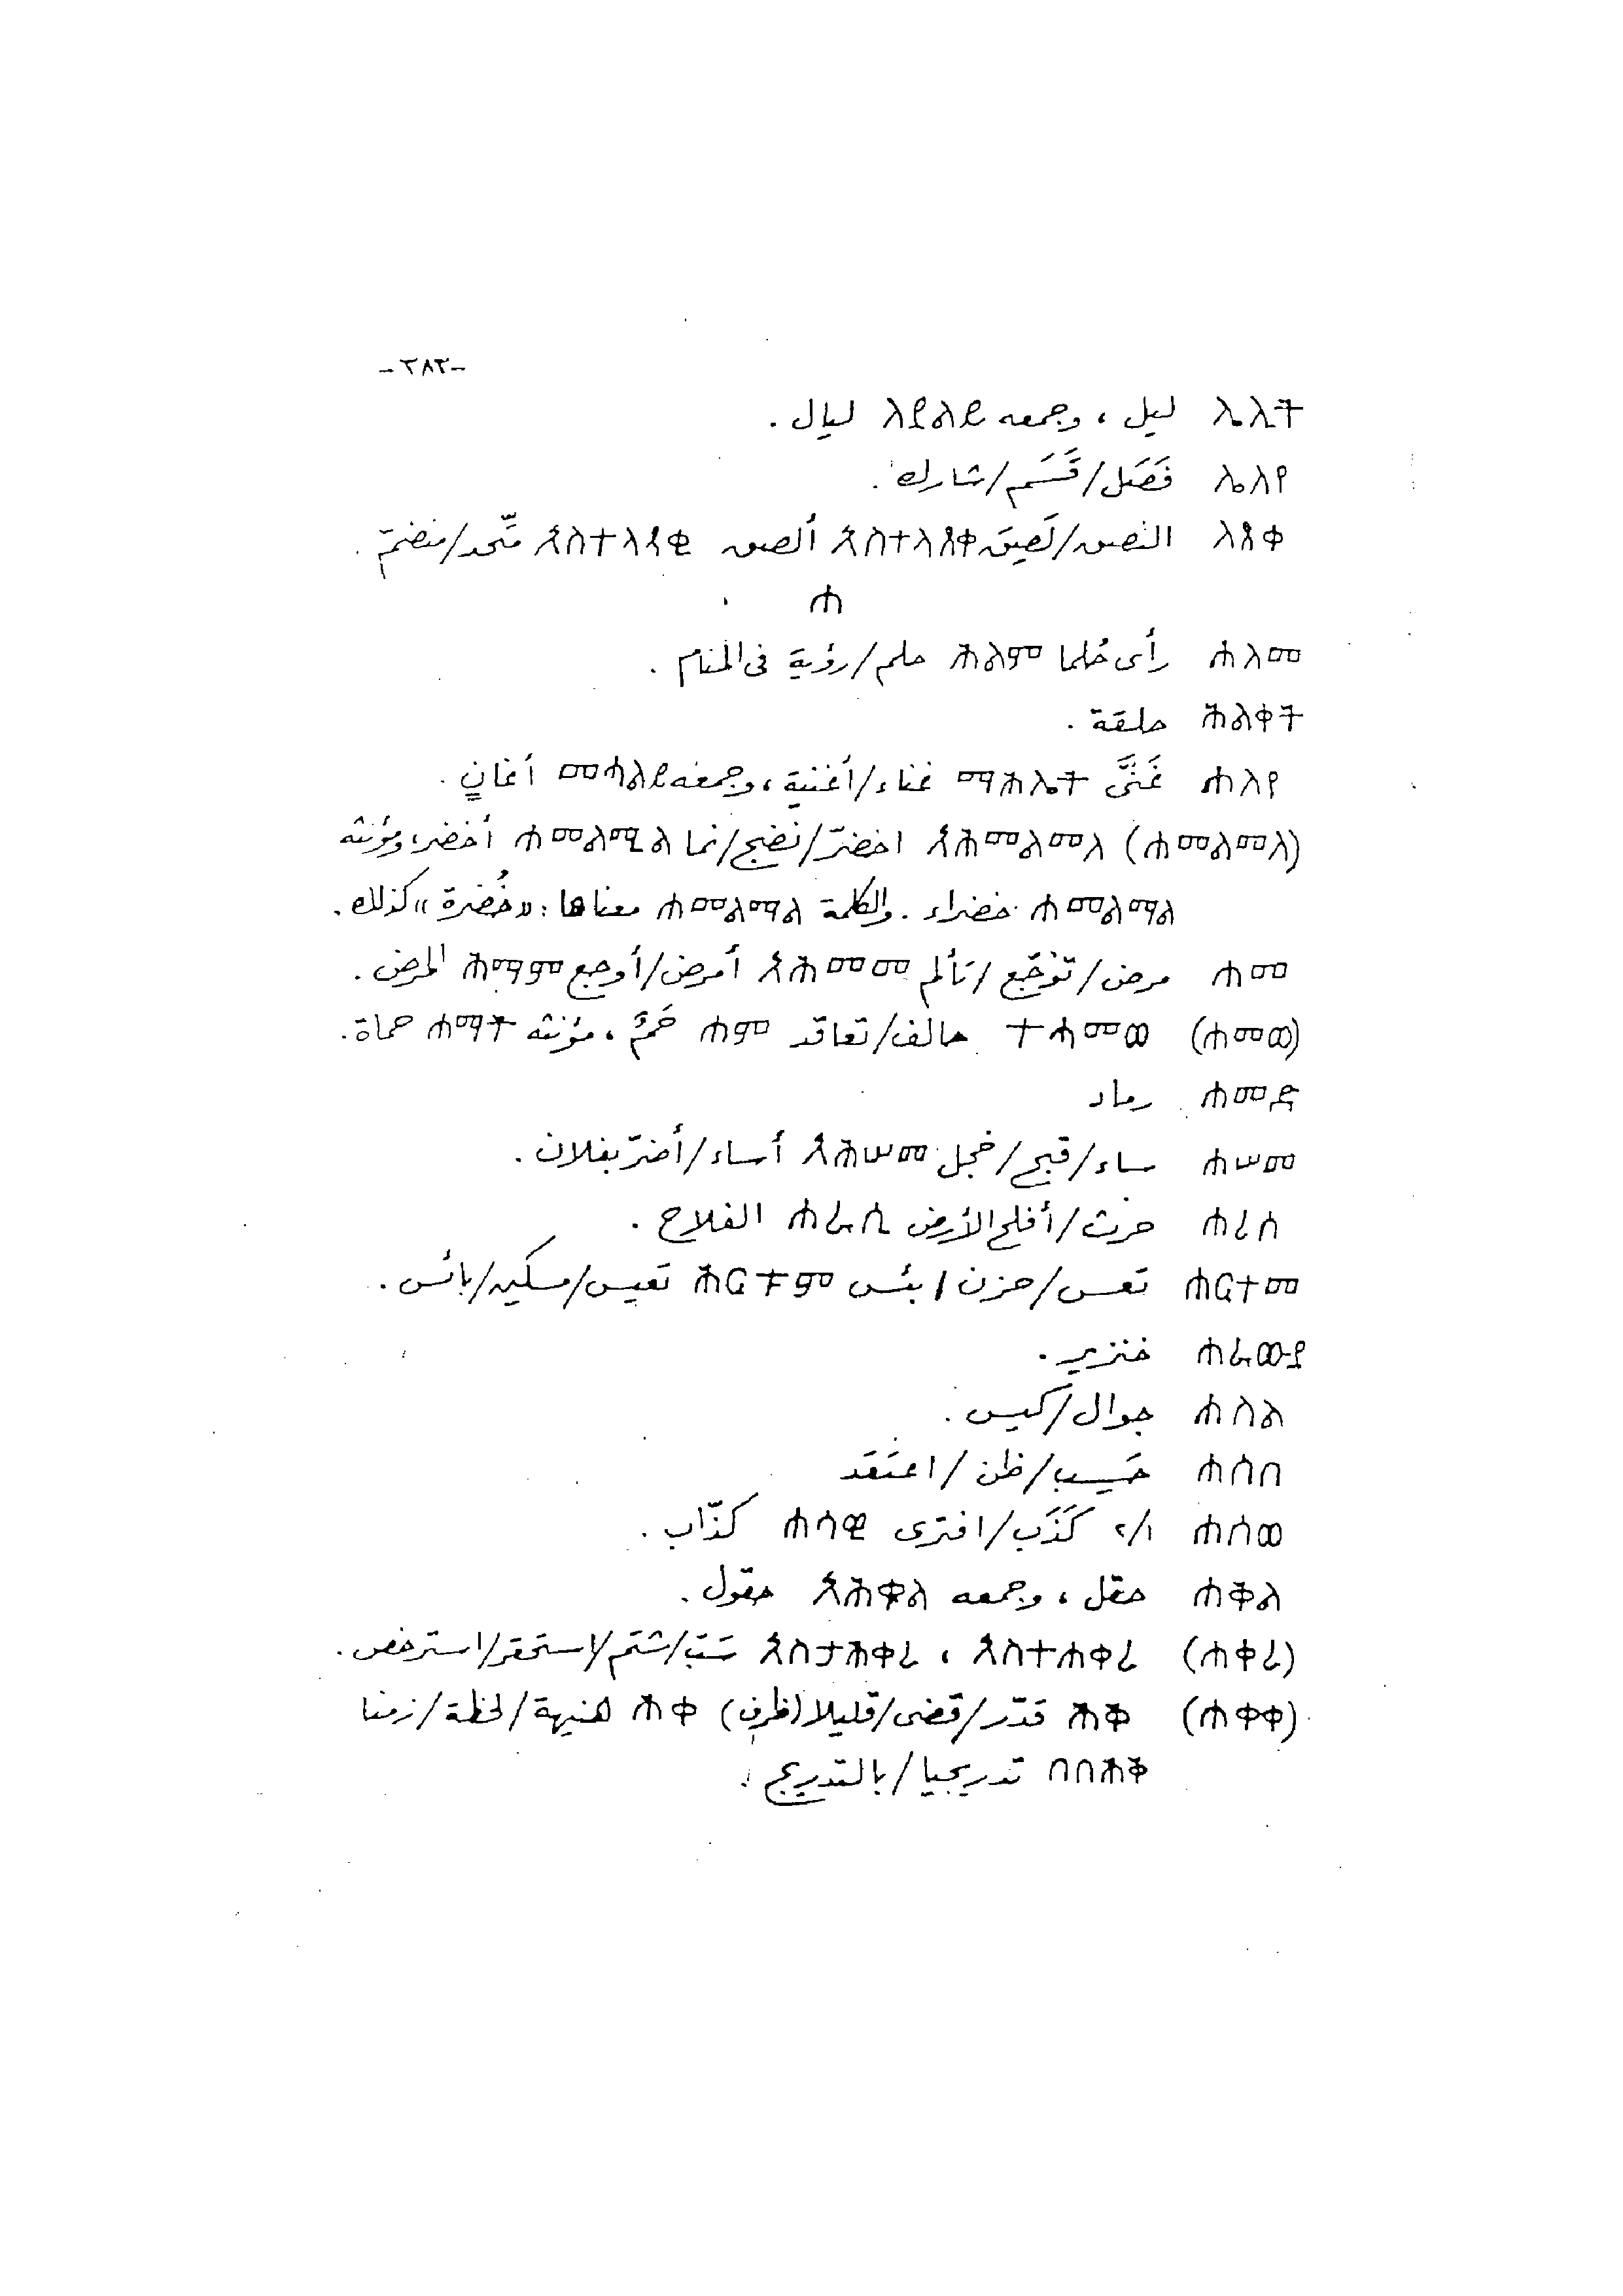 -٢٨٢-
ሌሊት ليل ، وجمعه ለያልይ ليال .
ሌለየ فَصَل/قَسَم/شارك .
ለጸቀ التصق/لَصِقَ አስተላጸቀ ألصق አስተላጻቂ متّحد/منضمّ .
ሐ
ሐለመ رأى حُلما ሕልም حلم/رؤية فى المنام .
ሕልቀት حلقة .
ሐለየ غَنَّى ማሕሌት غناء/أغنية، وجمعه መሐልይ أغانٍ .
(ሐመልመለ) አሕመልመለ اخضرّ/نضج/نما ሐመልሚል أخضر، ومؤنثه
ሐመልማል خضراء . والكلمة ሐመልማል معناها : «خُضرة» كذلك .
ሐመ مرض/توجّع/تألم አሕመመ أمرض/أوجع ሕማም المرض .
(ሐመወ) ተሐመወ حالف/تعاقد ሐም حَمٌ ، مؤنثه ሐማት حماة .
ሐመድ رماد
ሐሠመ ساء/قبح/خجل አሕሠመ أساء/أضرّ بفلان .
ሐረሰ حرث/أفلح الأرض ሐራሲ الفلاح .
ሐርተመ تعس/حزن/بئس ሕርትም تعيس/مسكين/بائس .
ሐራውያ خنزير .
ሐስል جوال/كيس .
ሐሰበ حَسِب/ظن/اعتَقَد
ሐሰወ ٢/١ كَذَب/افترى ሐሳዊ كذّاب .
ሐቅል حقل ، وجمعه አሕቁል حقول .
(ሐቀረ) አስተሐቀረ ، አስተሓቀረ سَبّ/شتم/استحقر/استرخص .
(ሐቀቀ) ሕቅ قدّر/قضى/قليلا (ظرف) ሕቀ هنيهة/لحظة/زمنا
በበሕቅ تدريجيا/بالتدريج .